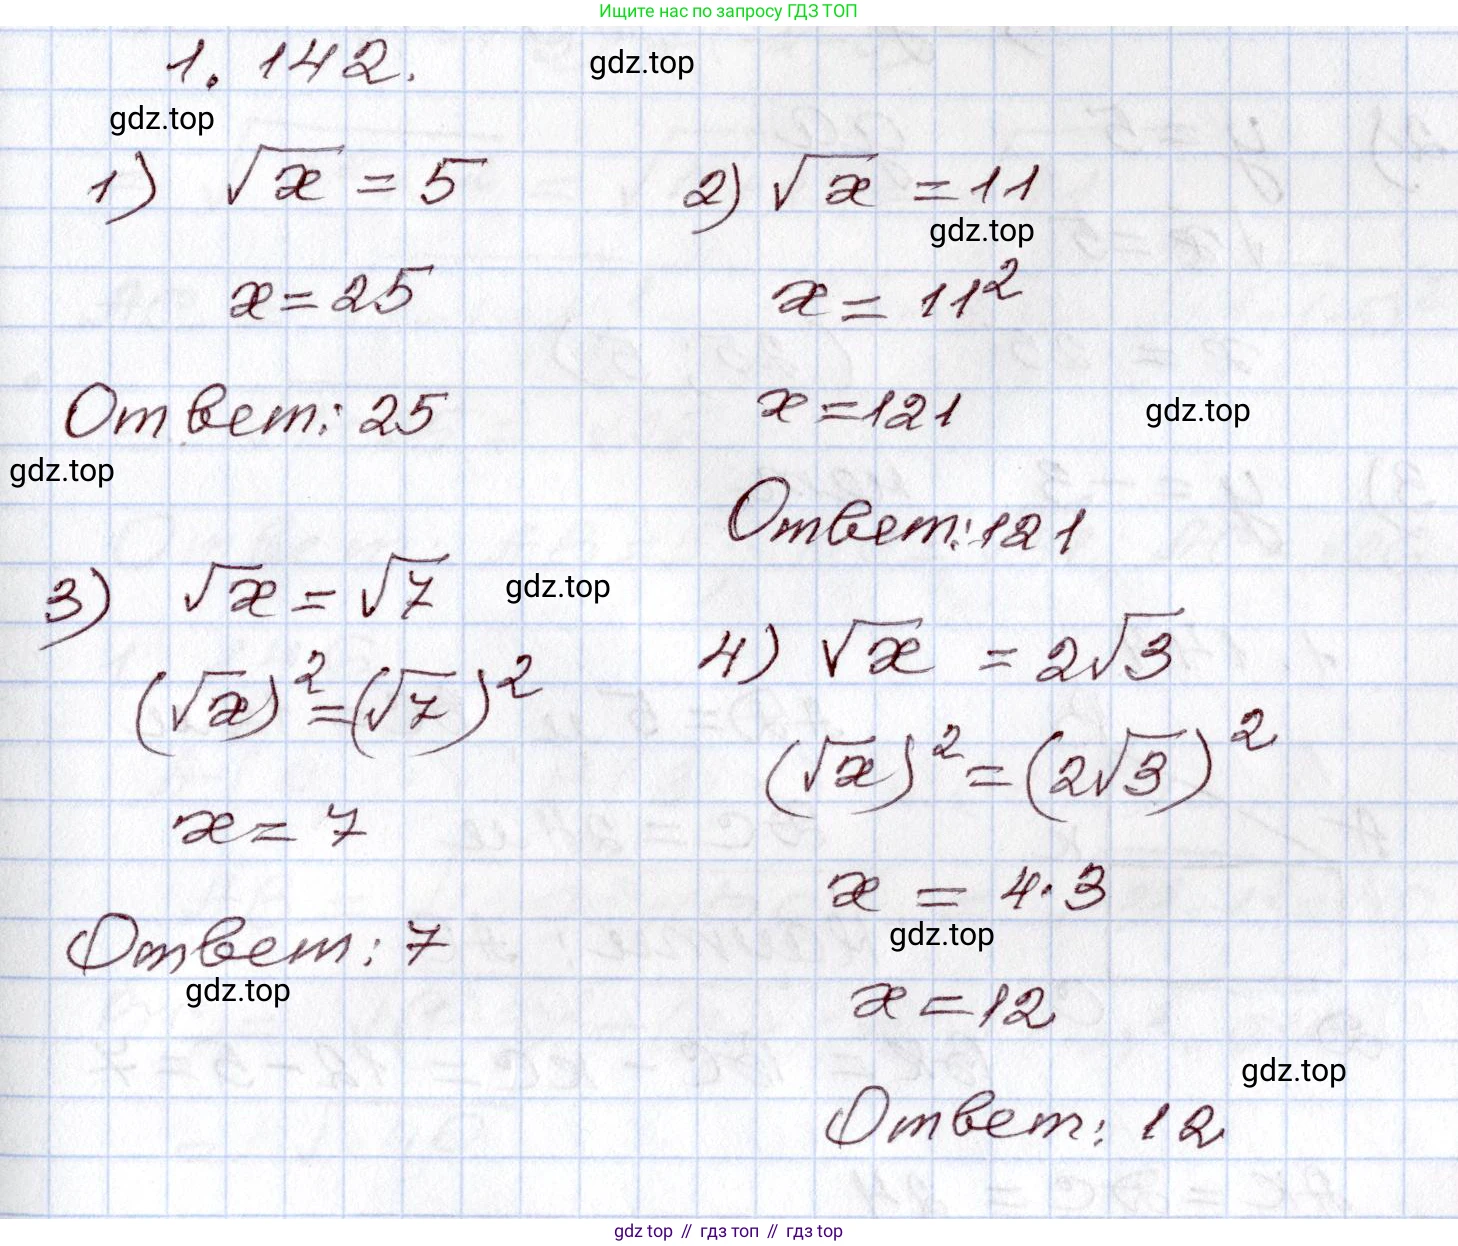 Ищите нас по запросу ГДЗ ТОП
1.142.
gdz.top
gdz.top
1) √x = 5
x = 25
Ответ: 25
gdz.top
2) √x = 11
gdz.top
x = 11²
x = 121
gdz.top
Ответ: 121
3) √x = √7
gdz.top
(√x)² = (√7)²
x = 7
Ответ: 7
gdz.top
4) √x = 2√3
(√x)² = (2√3)²
x = 4·3
gdz.top
x = 12
gdz.top
Ответ: 12
gdz top // гдз топ // gdz top